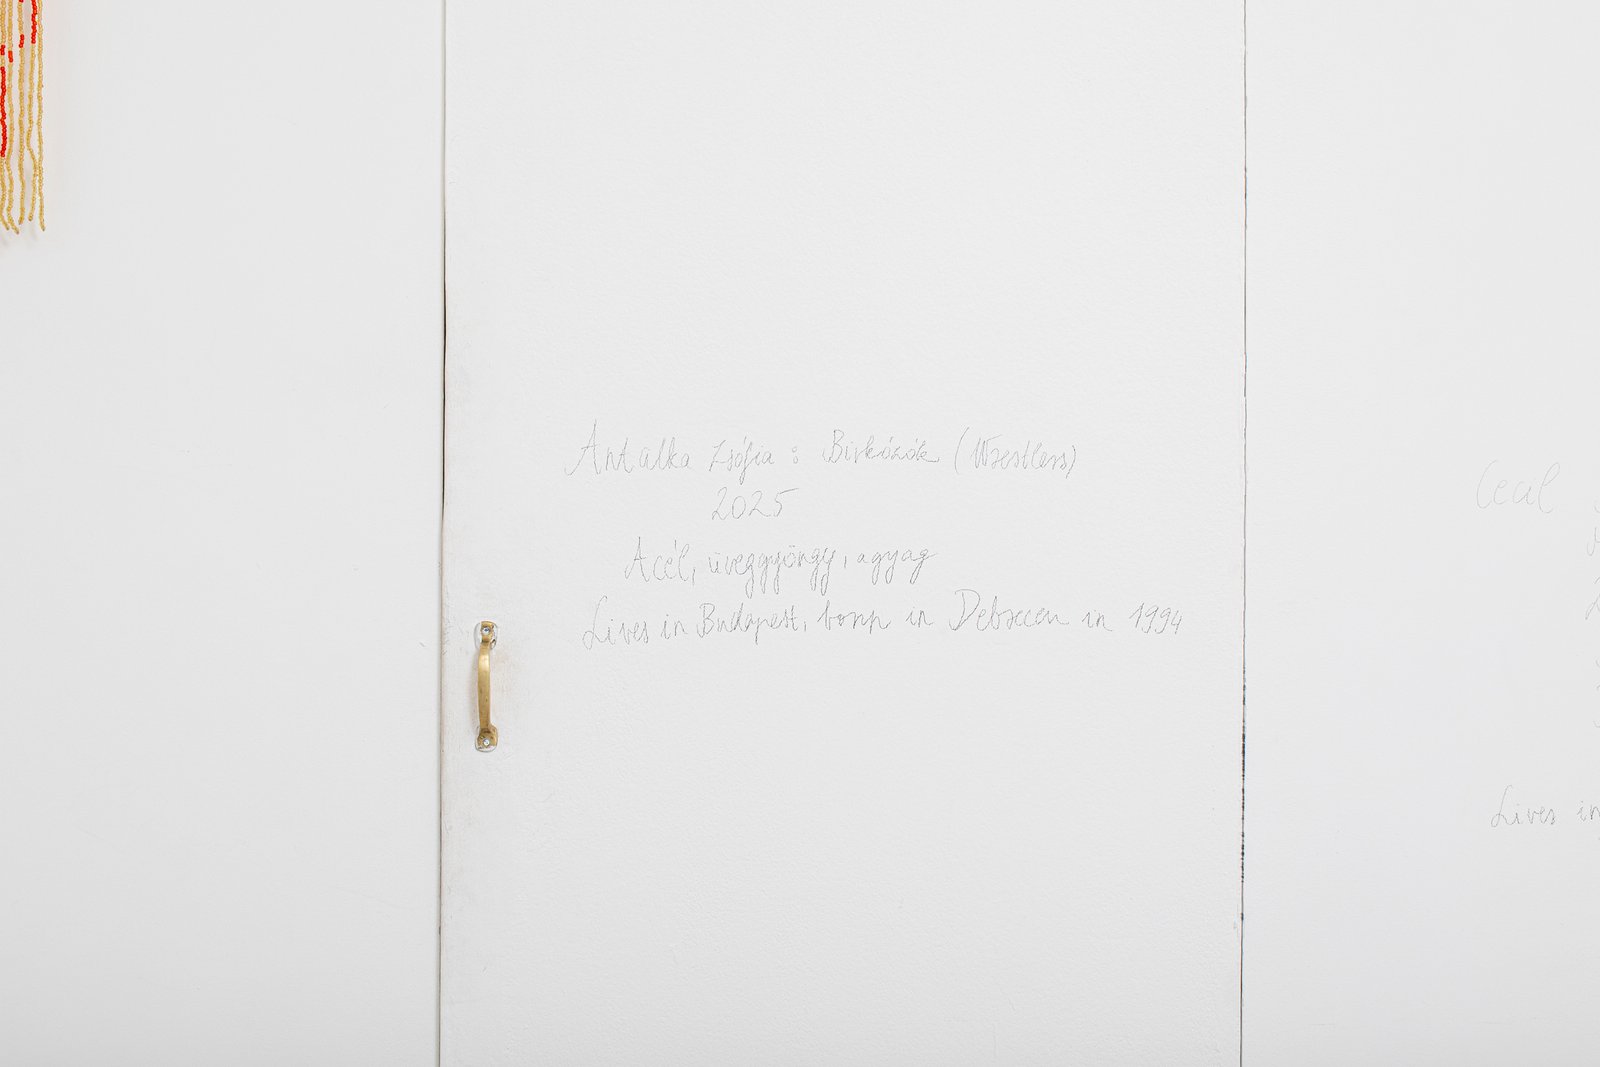 Antalka Zsófia : Birkózók (Wrestlers)
2025
Acél, üveggyöngy, agyag
Lives in Budapest, born in Debrecen in 1994
Cecil
Lives in